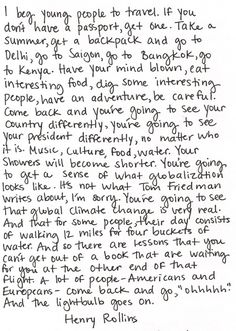 I beg young people to travel. If you
don't have a passport, get one. Take a
Summer, get a backpack and go to
Delhi, go to Saigon, go to Bangkok, go
to Kenya. Have your mind blown, eat
interesting food, dig some interesting
people, have an adventure, be careful.
Come back and you're going to see your
country differently, you're going to see
your president differently, no matter who
it is. Music, culture, food, water. Your
Showers will become shorter. You're going
to get a sense of what globalization
looks like. It's not what Tom Friedman
writes about, I'm sorry. You're going to see
that global climate change is very real.
And that for some people, their day consists
of walking 12 miles for four buckets of
water. And so there are lessons that you
can't get out of a book that are waiting
for you at the other end of that
flight. A lot of people-Americans and
Europeans- come back and go, "ohhhhh."
And the lightbulb goes on.
Henry Rollins